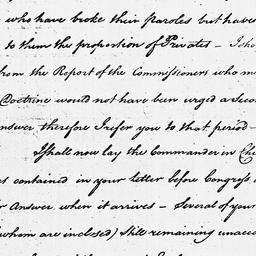 who have broke their paroles but have
to them the proportion of Privates –
from the Report of the Commissioners who
Doctrine would not have been urged a
answer therefore I refer you to that period –
I shall now lay the Commander in
contained in your letter before Congress
Answer when it arrives – Several of your
whom are inclosed) Still remaining